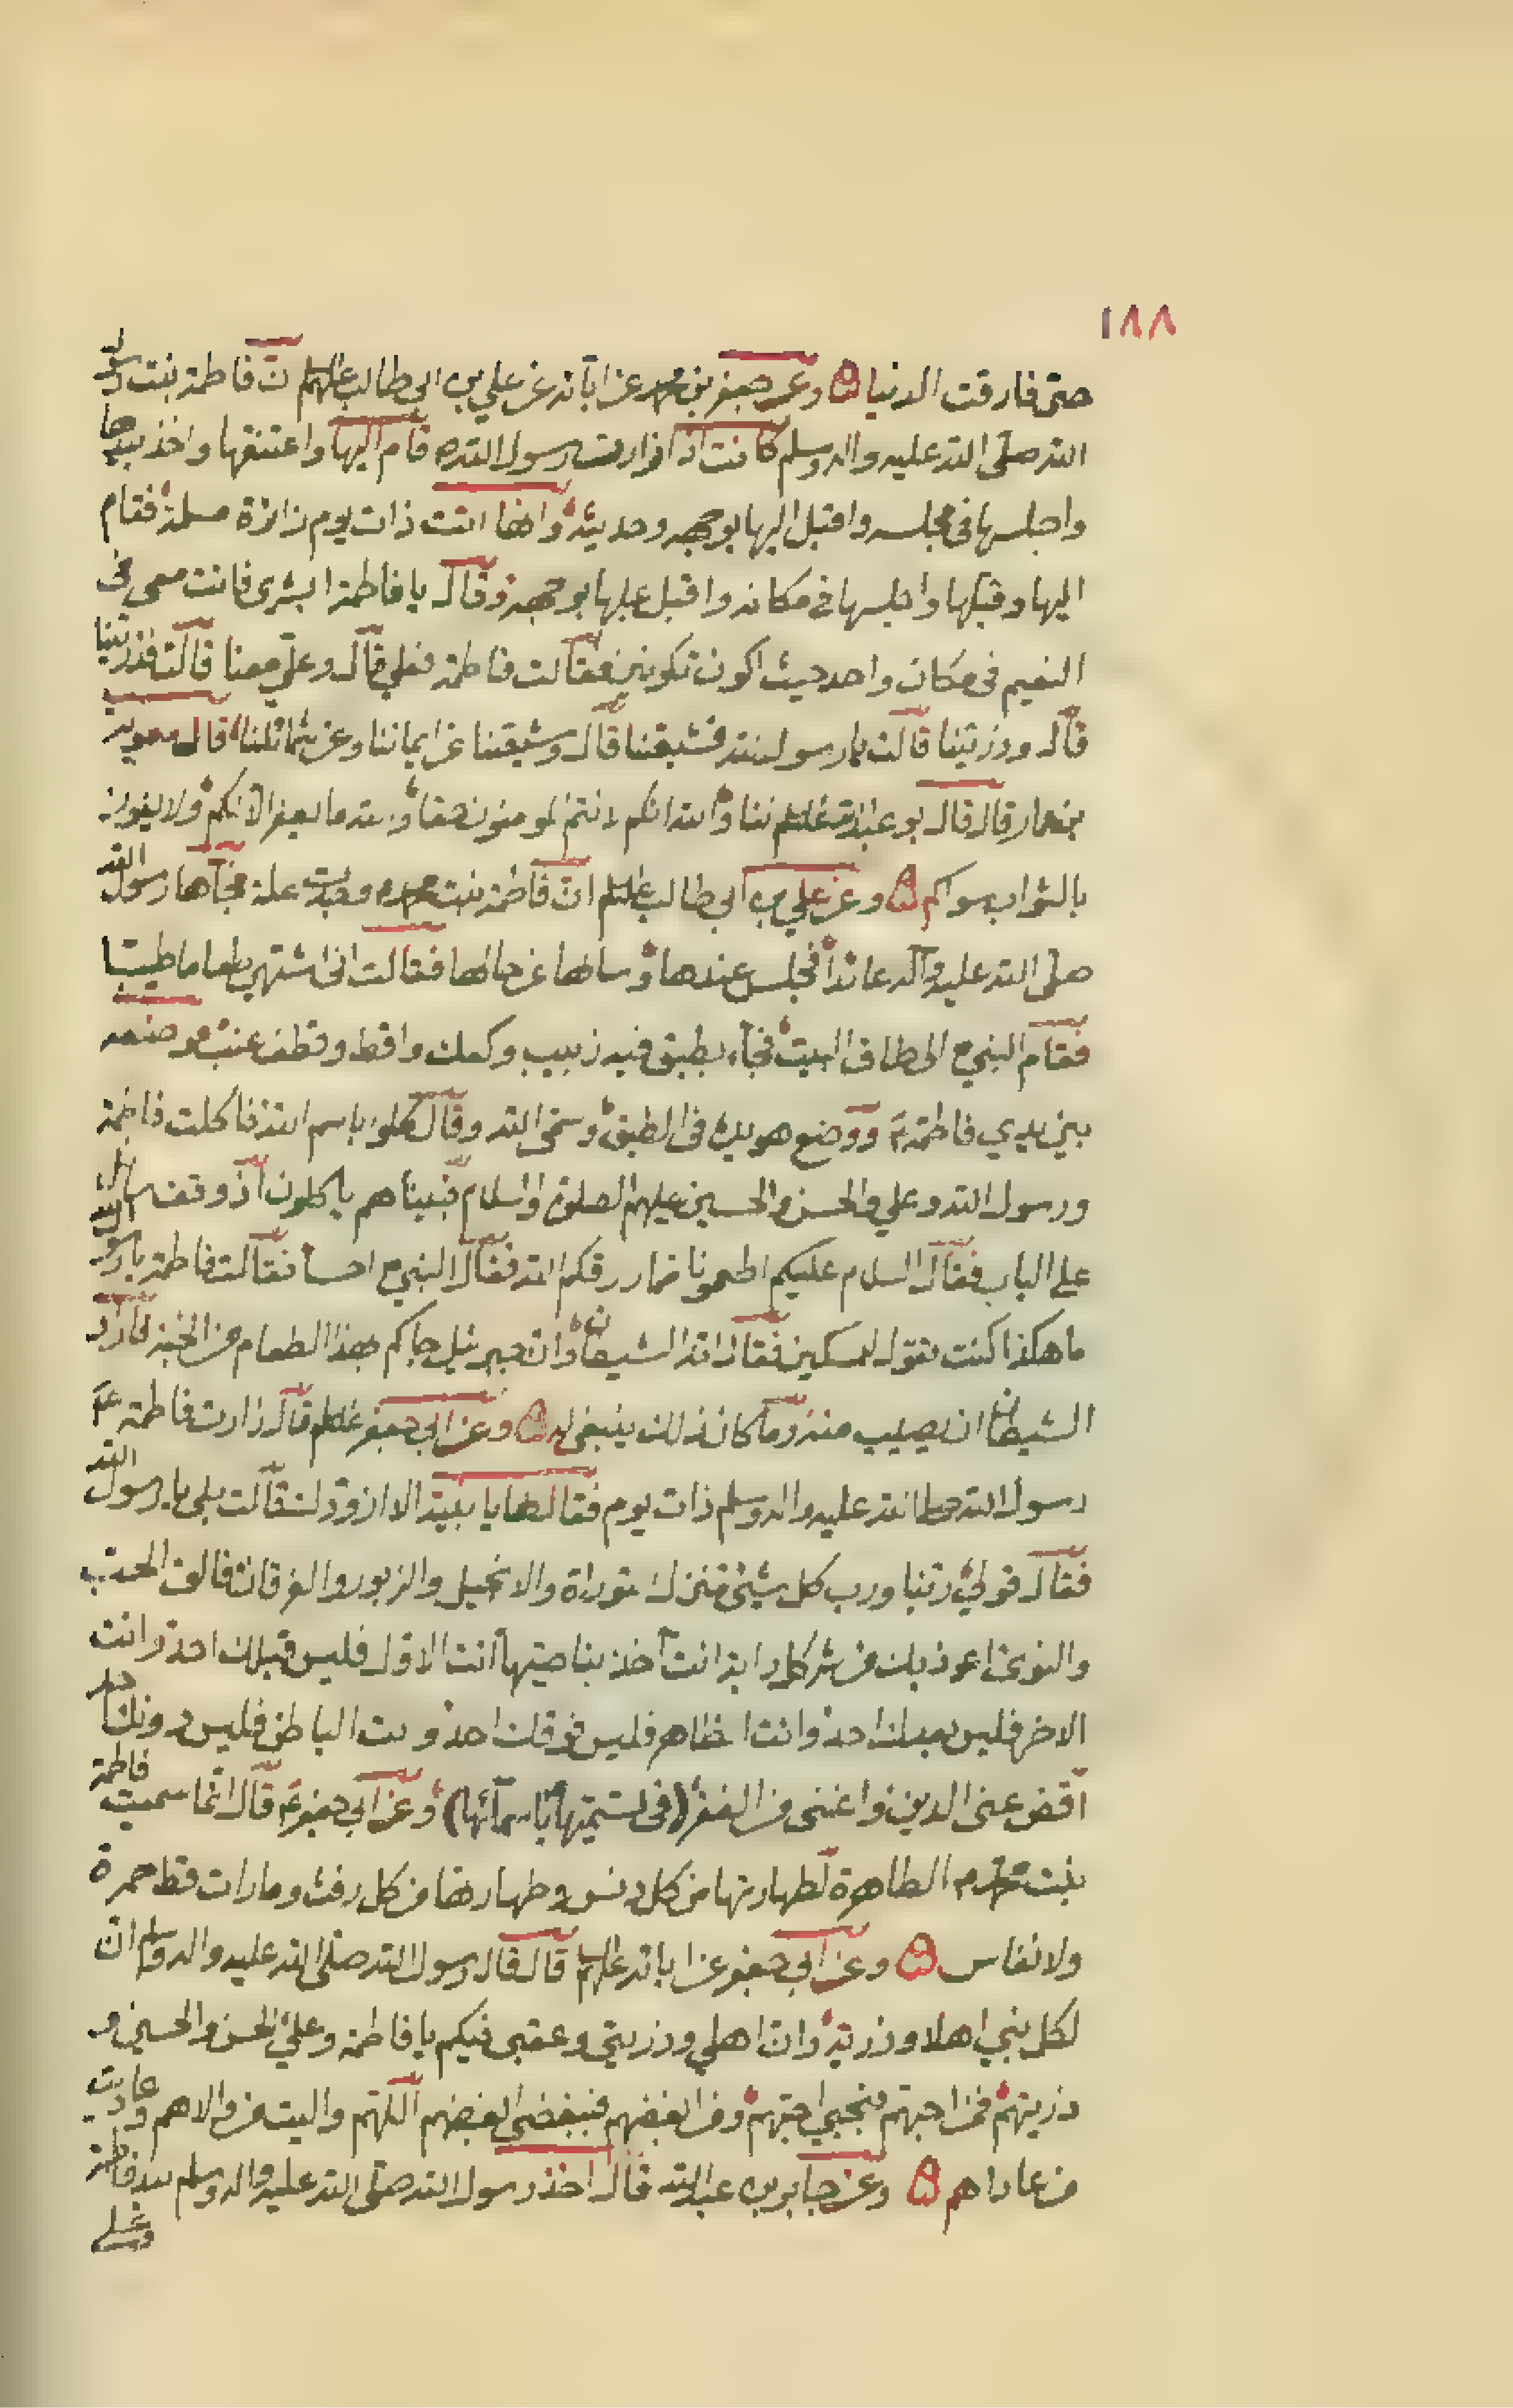 ١٨٨
حتى فارقت الدنيا ه وعن جعفر بن محمد عن ابآئه عن علي بن ابي طالب عليهم ان فاطمة بنت رسول
الله صلى الله عليه واله وسلم كانت اذا زارت رسول الله ص قام اليها واعتنقها واخذ بيدها
واجلسها في مجلسه واقبل اليها بوجهه وحديثه وانها اتت ذات يوم زائرة مسلمة فقام
اليها وقبلها واجلسها في مكانه واقبل عليها بوجهه وقال يا فاطمة ابشري فانت معي في
النعيم في مكان واحد حيث اكون تكونين فقالت فاطمة فعلي قال وعلي معنا قالت فذريتنا
قال وذريتنا قالت يا رسول الله فشيعتنا قال وشيعتنا عن ايماننا وعن شمائلنا قال معوية
بن عمار قال قال ابو عبد الله عليلم لنا والله انكم لانتم المومنون حقا والله ما يغفر الا لكم ولا يفوز
بالثواب سواكم ه وعن علي بن ابي طالب عليلم ان فاطمة بنت محمد ص علة فجآها رسول الله
صلى الله عليه وآله عائدا فجلس عندها وسالها عن حالها فقالت اني اشتهي طعاما طيبا
فقام النبي ص الى طاق البيت فجآء بطبق فيه زبيب وكعك واقط وقطف عنب فوضعه
بين يدي فاطمة ع ووضع هو يده في الطبق وسمى الله وقال كلوا باسم الله فاكلت فاطمة
ورسول الله وعلي والحسن والحسين عليهم الصلوة والسلام فبيناهم ياكلون اذ وقف سائل
على الباب فقال السلام عليكم اطعمونا مما رزقكم الله فقال النبي ص اخسا فقالت فاطمة يا رسول الله
ما هكذا كنت تقول للمسكين فقال انه الشيطان وان جبرئيل جاكم بهذا الطعام من الجنة فاراد
الشيطان ان يصيب منه وما كان ذلك ينبغي له ه وعن ابي جعفر عليلم قال زارت فاطمة ع
رسول الله صلى الله عليه واله وسلم ذات يوم فقال لها يا بنية الا ازودك قالت بلى يا رسول الله
فقال قولي ربنا ورب كل شيئ منزل التوراة والانجيل والزبور والفرقان فالق الحب
والنوى اعوذ بك من شر كل دابة انت آخذ بناصيتها انت الاول فليس قبلك احد وانت
الاخر فليس بعدك احد وانت الظاهر فليس فوقك احد وانت الباطن فليس دونك احد
اقض عني الدين واغنني من الفقر (في تسميتها باسمآئها) وعن ابي جعفر ع قال انما سميت فاطمة
بنت محمد ص الطاهرة لطهارتها من كل دنس وطهارتها من كل رفث وما رات قط حمرة
ولا نفاس ه وعن ابي جعفر عن ابائه عليهم قال قال رسول الله صلى الله عليه واله وسلم ان
لكل نبي اهلا وذرية وان اهلي وذريتي وعقبي فيكم يا فاطمة وعلي والحسن والحسين و
ذريتهم فمن احبهم فبحبي احبهم ومن ابغضهم فببغضي ابغضهم اللهم والي من والاهم وعاديت
من عاداهم ه وعن جابر بن عبد الله قال اخذ رسول الله صلى الله عليه واله وسلم بيد فاطمة
وعلي